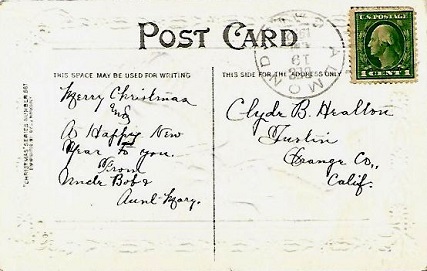 POST CARD
THIS SPACE MAY BE USED FOR WRITING
THIS SIDE FOR THE ADDRESS ONLY
U.S. POSTAGE
1 CENT 1
ALMOND
19
Merry Christmas
and
A Happy New
Year to you.
From
Uncle Bob &
Aunt Mary.
Clyde B.
Tustin
Orange Co.,
Calif.